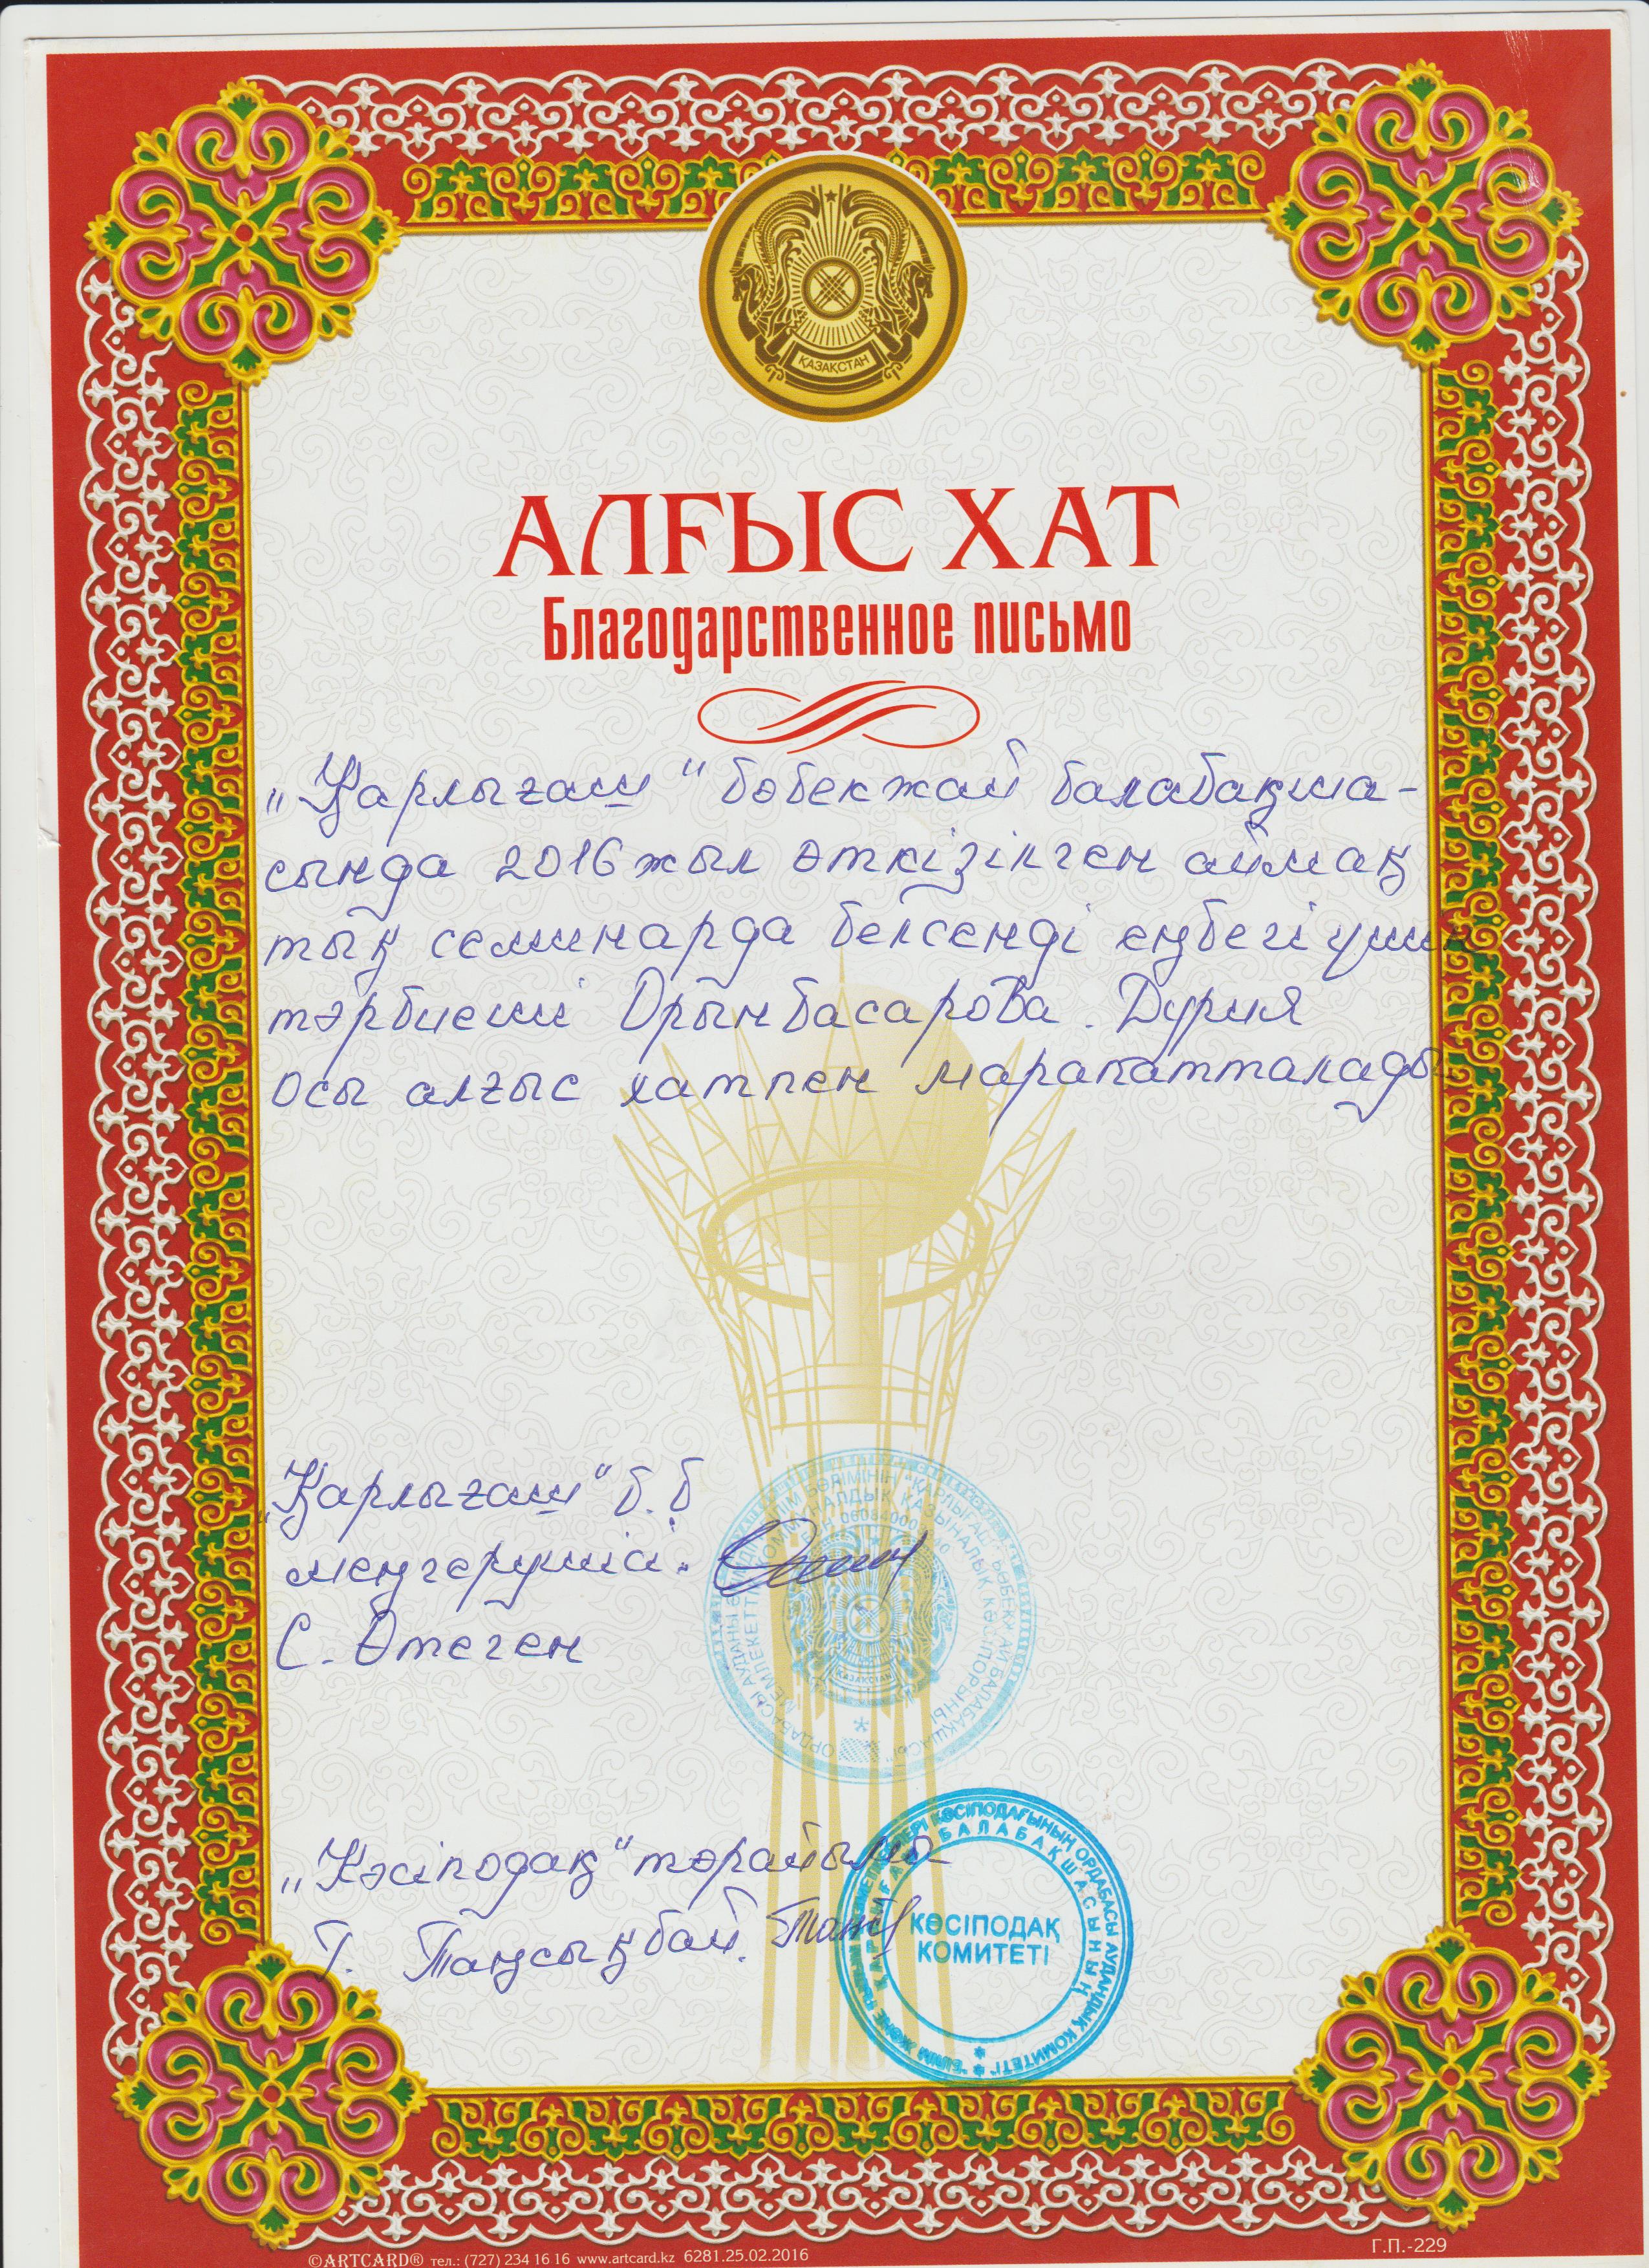 ҚАЗАҚСТАН
АЛҒЫС ХАТ
Благодарственное письмо
„Қарлығаш“ бөбекжай балабақша-
сында 2016 жыл өткізілген аймақ
тық семинарда белсенді еңбегі үшін
тәрбиеші Орынбасарова. Дурия
Осы алғыс хатпен марапатталады
„Қарлығаш“ б.б
меңгерушісі.
С. Өтеген
„Кәсіподақ“ төрайымы
Т. Таңсықбай.
КӘСІПОДАҚ
КОМИТЕТІ
©ARTCARD® тел.: (727) 234 16 16 www.artcard.kz 6281.25.02.2016
Г.П.-229